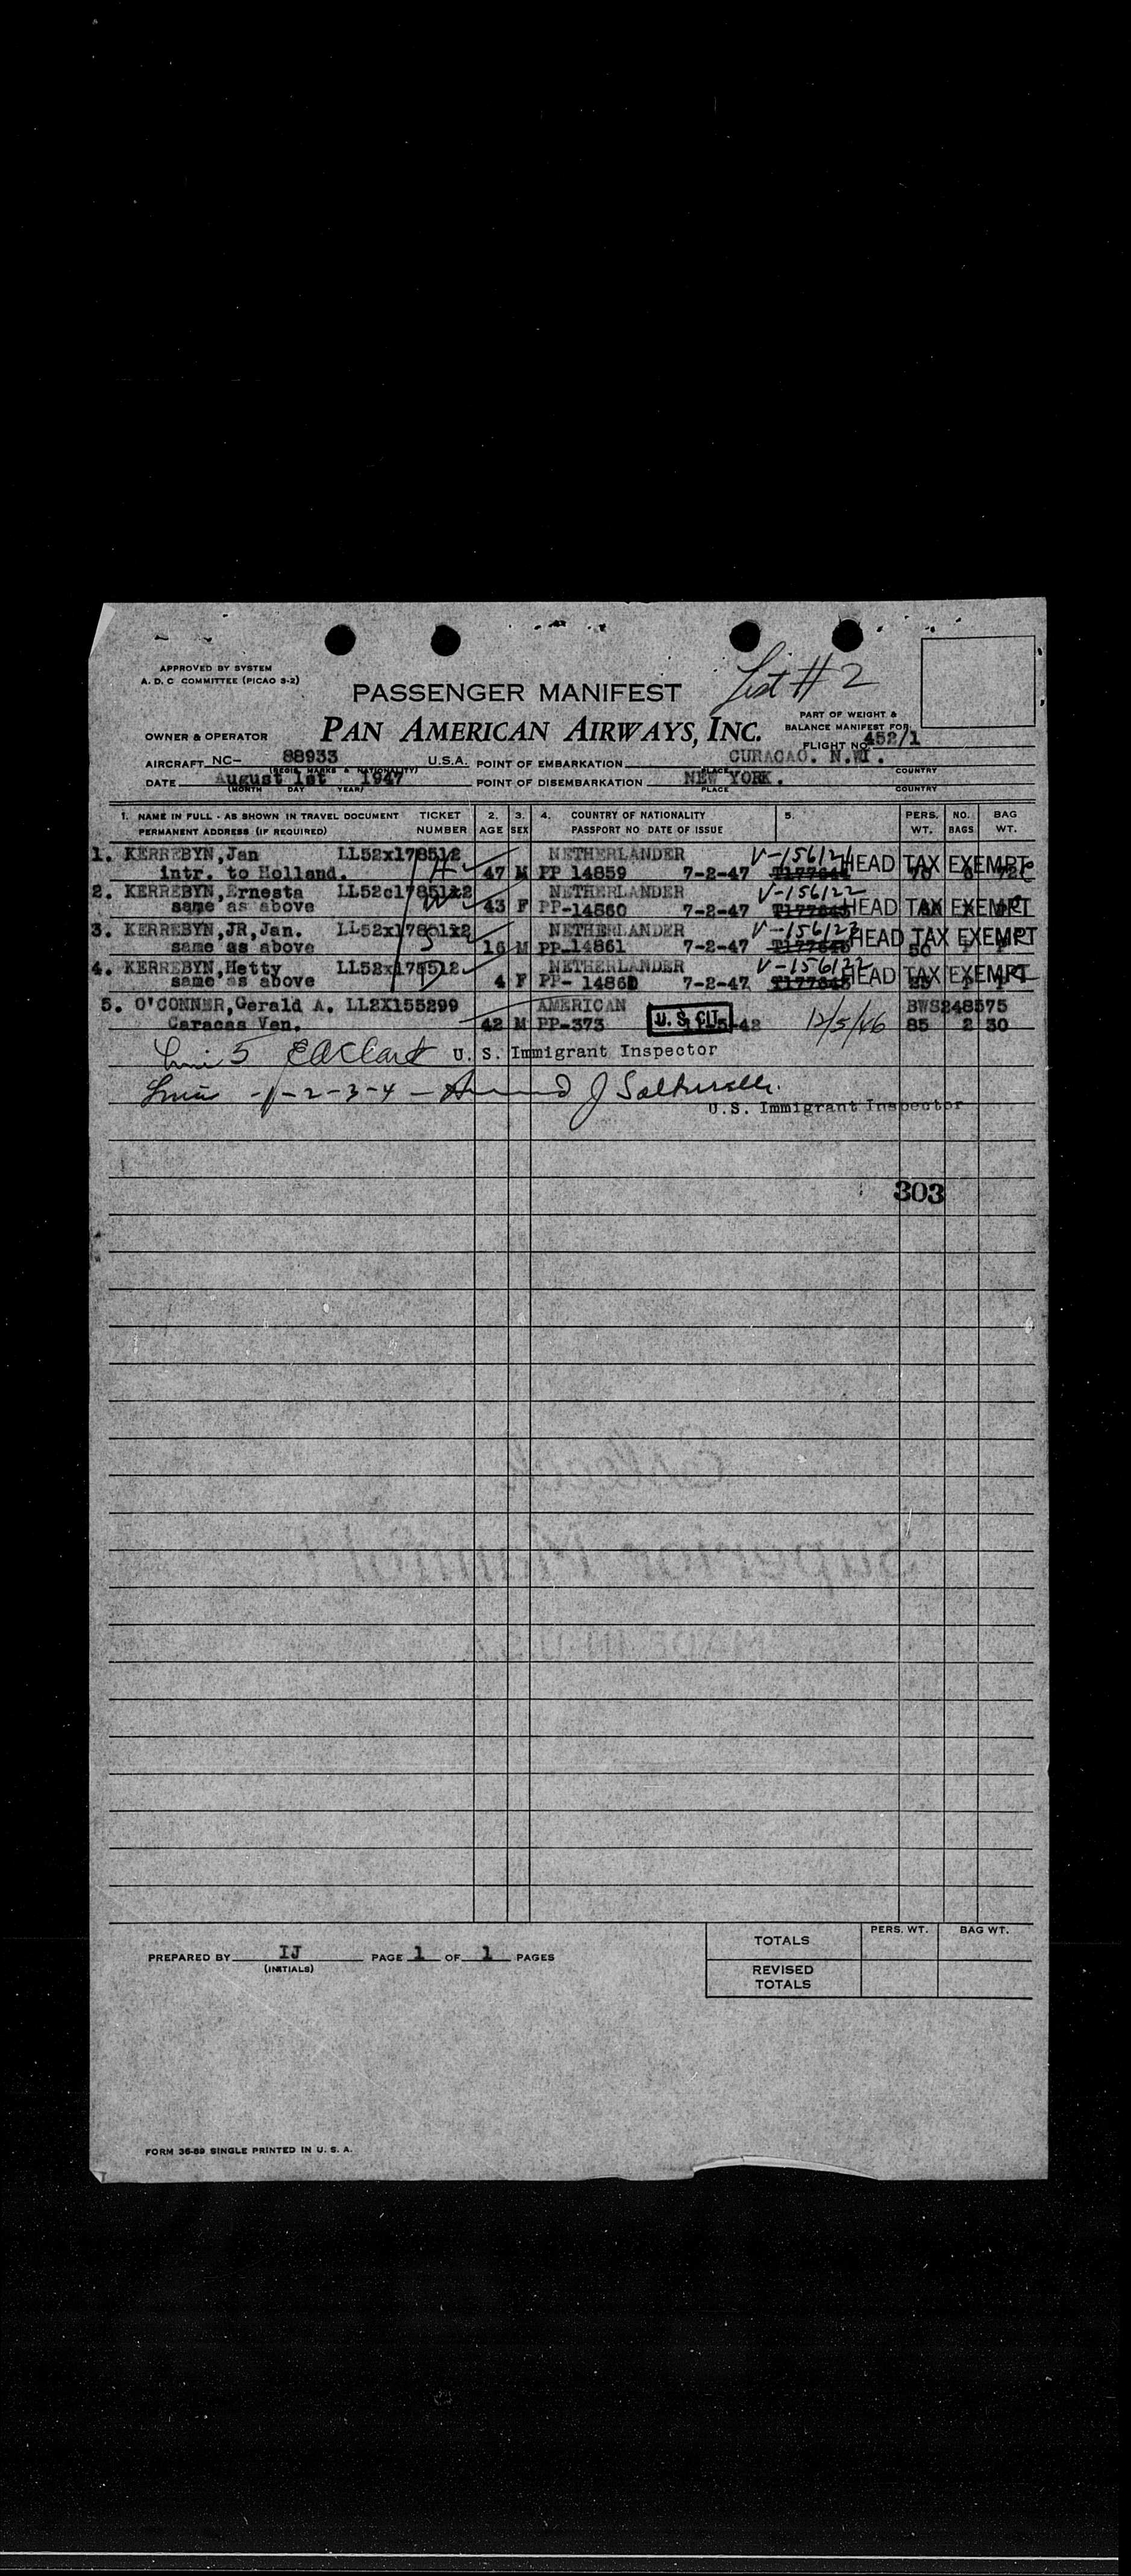 List # 2
APPROVED BY SYSTEM
A. D. C COMMITTEE (PICAO 3-2)
PASSENGER MANIFEST
PART OF WEIGHT &
BALANCE MANIFEST FOR
OWNER & OPERATOR PAN AMERICAN AIRWAYS, INC.
FLIGHT NO. 452/1
AIRCRAFT NC- 88933 U.S.A. POINT OF EMBARKATION CURACAO. N.WI.
(REGIS. MARKS & NATIONALITY) PLACE COUNTRY
DATE August 1st 1947 POINT OF DISEMBARKATION NEW YORK.
(MONTH DAY YEAR) PLACE COUNTRY
1. NAME IN FULL - AS SHOWN IN TRAVEL DOCUMENT TICKET 2. 3. 4. COUNTRY OF NATIONALITY 5. PERS. NO. BAG
PERMANENT ADDRESS (IF REQUIRED) NUMBER AGE SEX PASSPORT NO DATE OF ISSUE WT. BAGS WT.
1. KERREBYN,Jan LL52x178512 NETHERLANDER V-156121
intr. to Holland. H 47 M PP 14859 7-2-47 HEAD TAX EXEMPT
2. KERREBYN,Ernesta NETHERLANDER V-156122
same as above W 43 F PP-14860 7-2-47 HEAD TAX EXEMPT
3. KERREBYN,JR,Jan. NETHERLANDER V-156123
same as above S 16 M PP-14861 7-2-47 HEAD TAX EXEMPT
4. KERREBYN,Hetty NETHERLANDER V-156122
same as above D 4 F PP- 14860 7-2-47 HEAD TAX EXEMPT
5. O'CONNER,Gerald A. LL2X155299 AMERICAN BWS248575
Caracas Ven. 42 M PP-373 U. S. CIT. 12/5/46 85 2 30
5 U. S. Immigrant Inspector
-1-2-3-4- J
U.S. Immigrant Inspector
303
PREPARED BY IJ PAGE 1 OF 1 PAGES
(INITIALS)
PERS. WT. BAG WT.
TOTALS
REVISED
TOTALS
FORM 36-89 SINGLE PRINTED IN U. S. A.